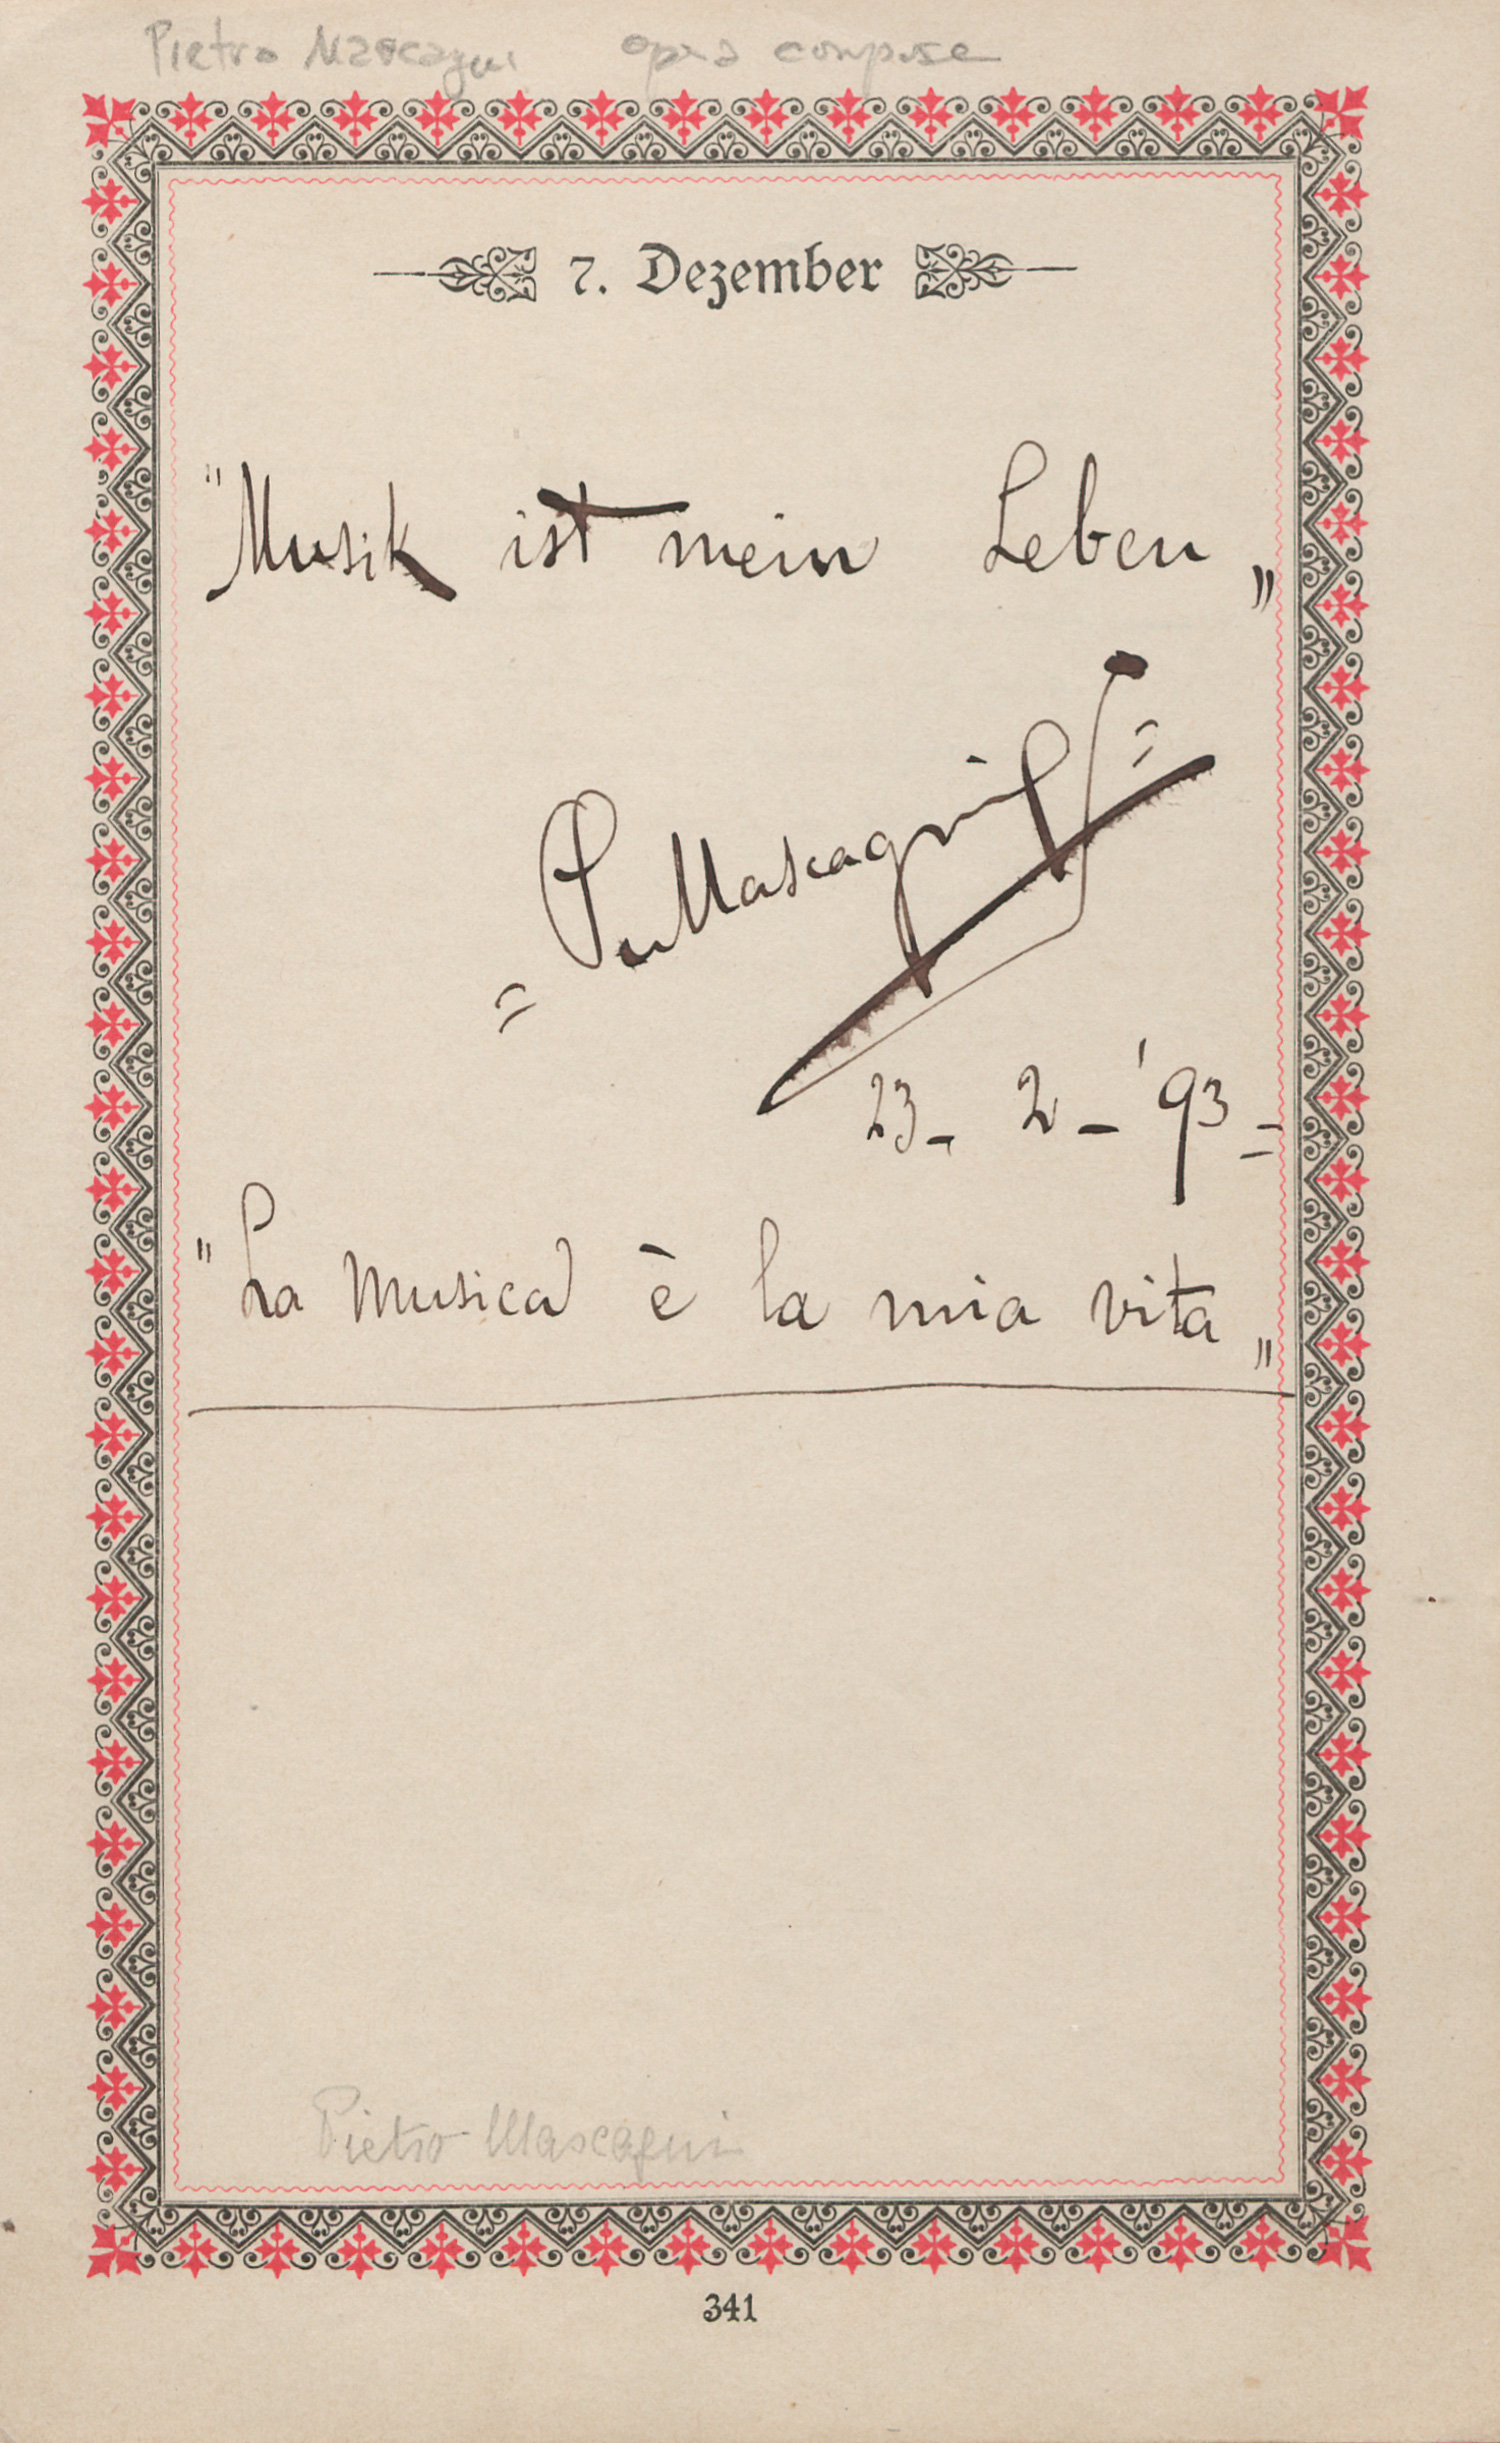 Pietro Mascagni opera compose
7. Dezember
"Musik ist mein Leben„
= P Mascagni =
23_ 2_ '93_=
"La Musica è la mia vita„
Pietro Mascagni
341